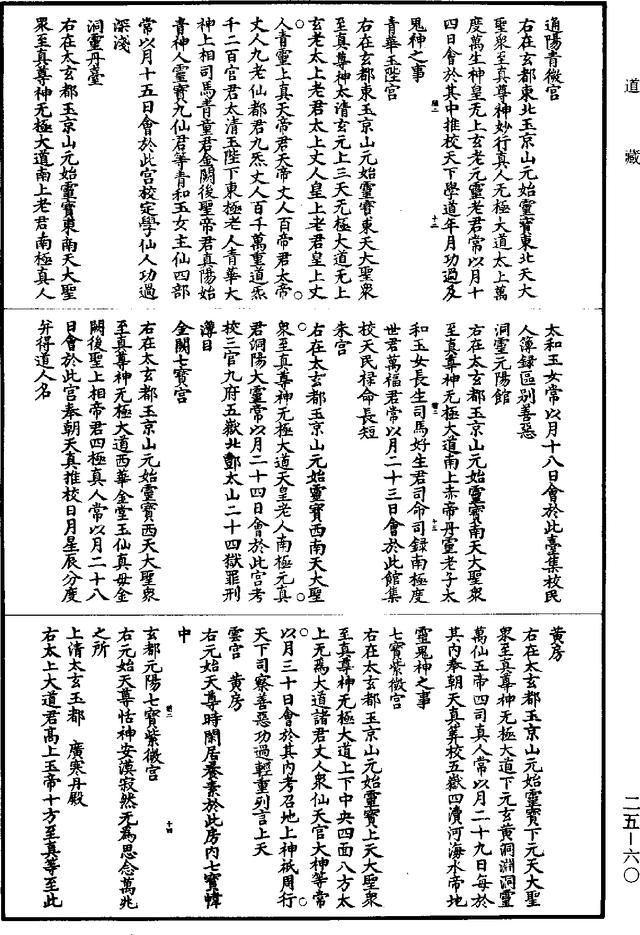 道藏
通陽青微宮
右在玄都東北玉京山元始靈寶東北天大
聖衆至真尊神妙行真人无極大道太上萬
度萬生神皇无上玄老元靈老君常以月十
四日會於其中推校天下學道年月功過及
鬼神之事
青華玉陛宮
右在玄都東玉京山元始靈寶東天大聖衆
至真尊神太清玄元上三天无極大道无上
玄老太上老君太上丈人皇上老君皇上丈
人青靈上真天帝君天帝丈人百帝君太帝
丈人九老仙都君九炁丈人百千萬重道炁
千二百官君太清玉陛下東極老人青華大
神上相司馬青童君金闕後聖帝君真陽始
青神人靈寶九仙君等青和玉女主仙四部
常以月十五日會於此宮校定學仙人功過
深淺
洞靈丹臺
右在太玄都玉京山元始靈寶東南天大聖
衆至真尊神无極大道南上老君南極真人
太和玉女常以月十八日會於此臺集校民
人簿録區别善惡
洞靈元陽館
右在太玄都玉京山元始靈寶南天大聖衆
至真尊神无極大道南上赤帝丹靈老子太
和玉女長生司馬好生君司命司録南極度
世君萬福君常以月二十三日會於此館集
校天民禄命長短
朱宮
右在太玄都玉京山元始靈寶西南天大聖
衆至真尊神无極大道天皇老人南極元真
君洞陽大靈常以月二十四日會於此宮考
校三官九府五嶽北酆太山二十四獄罪刑
簿目
金闕七寶宮
右在太玄都玉京山元始靈寶西天大聖衆
至真尊神无極大道西華金堂玉仙真母金
闕後聖上相帝君四極真人常以月二十八
日會於此宮奉朝天真推校日月星辰分度
并得道人名
黄房
右在太玄都玉京山元始靈寶下元天大聖
衆至真尊神无極大道下元玄黄洞淵洞靈
萬仙五帝四司真人常以月二十九日每於
其内奉朝天真筭校五嶽四瀆河海水帝地
靈鬼神之事
七寶紫微宮
右在太玄都玉京山元始靈寶上天大聖衆
至真尊神无極大道上下中央四面八方太
上无爲大道諸君丈人衆仙天官大神等常
以月三十日會於其内考召地上神祇周行
天下司察善惡功過輕重列言上天
雲宮　黄房
右元始天尊時閑居養素於此房内七寶幃
中
玄都元陽七寶紫微宮
右元始天尊恬神安漠寂然无爲思念萬兆
之所
上清太玄玉都　廣寒丹殿
右太上大道君高上玉帝十方至真等至此
二五—六〇